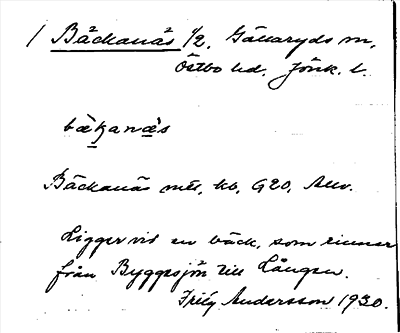 / Bäckanäs 1/2. Gällaryds sn,
Östbo hd. Jönk. l.
bækanæs
Bäckanäs mts, kb, G20, Anv.
Ligger vid en bäck, som rinner
från Byggesjön till Lången.
Andersson 1930.